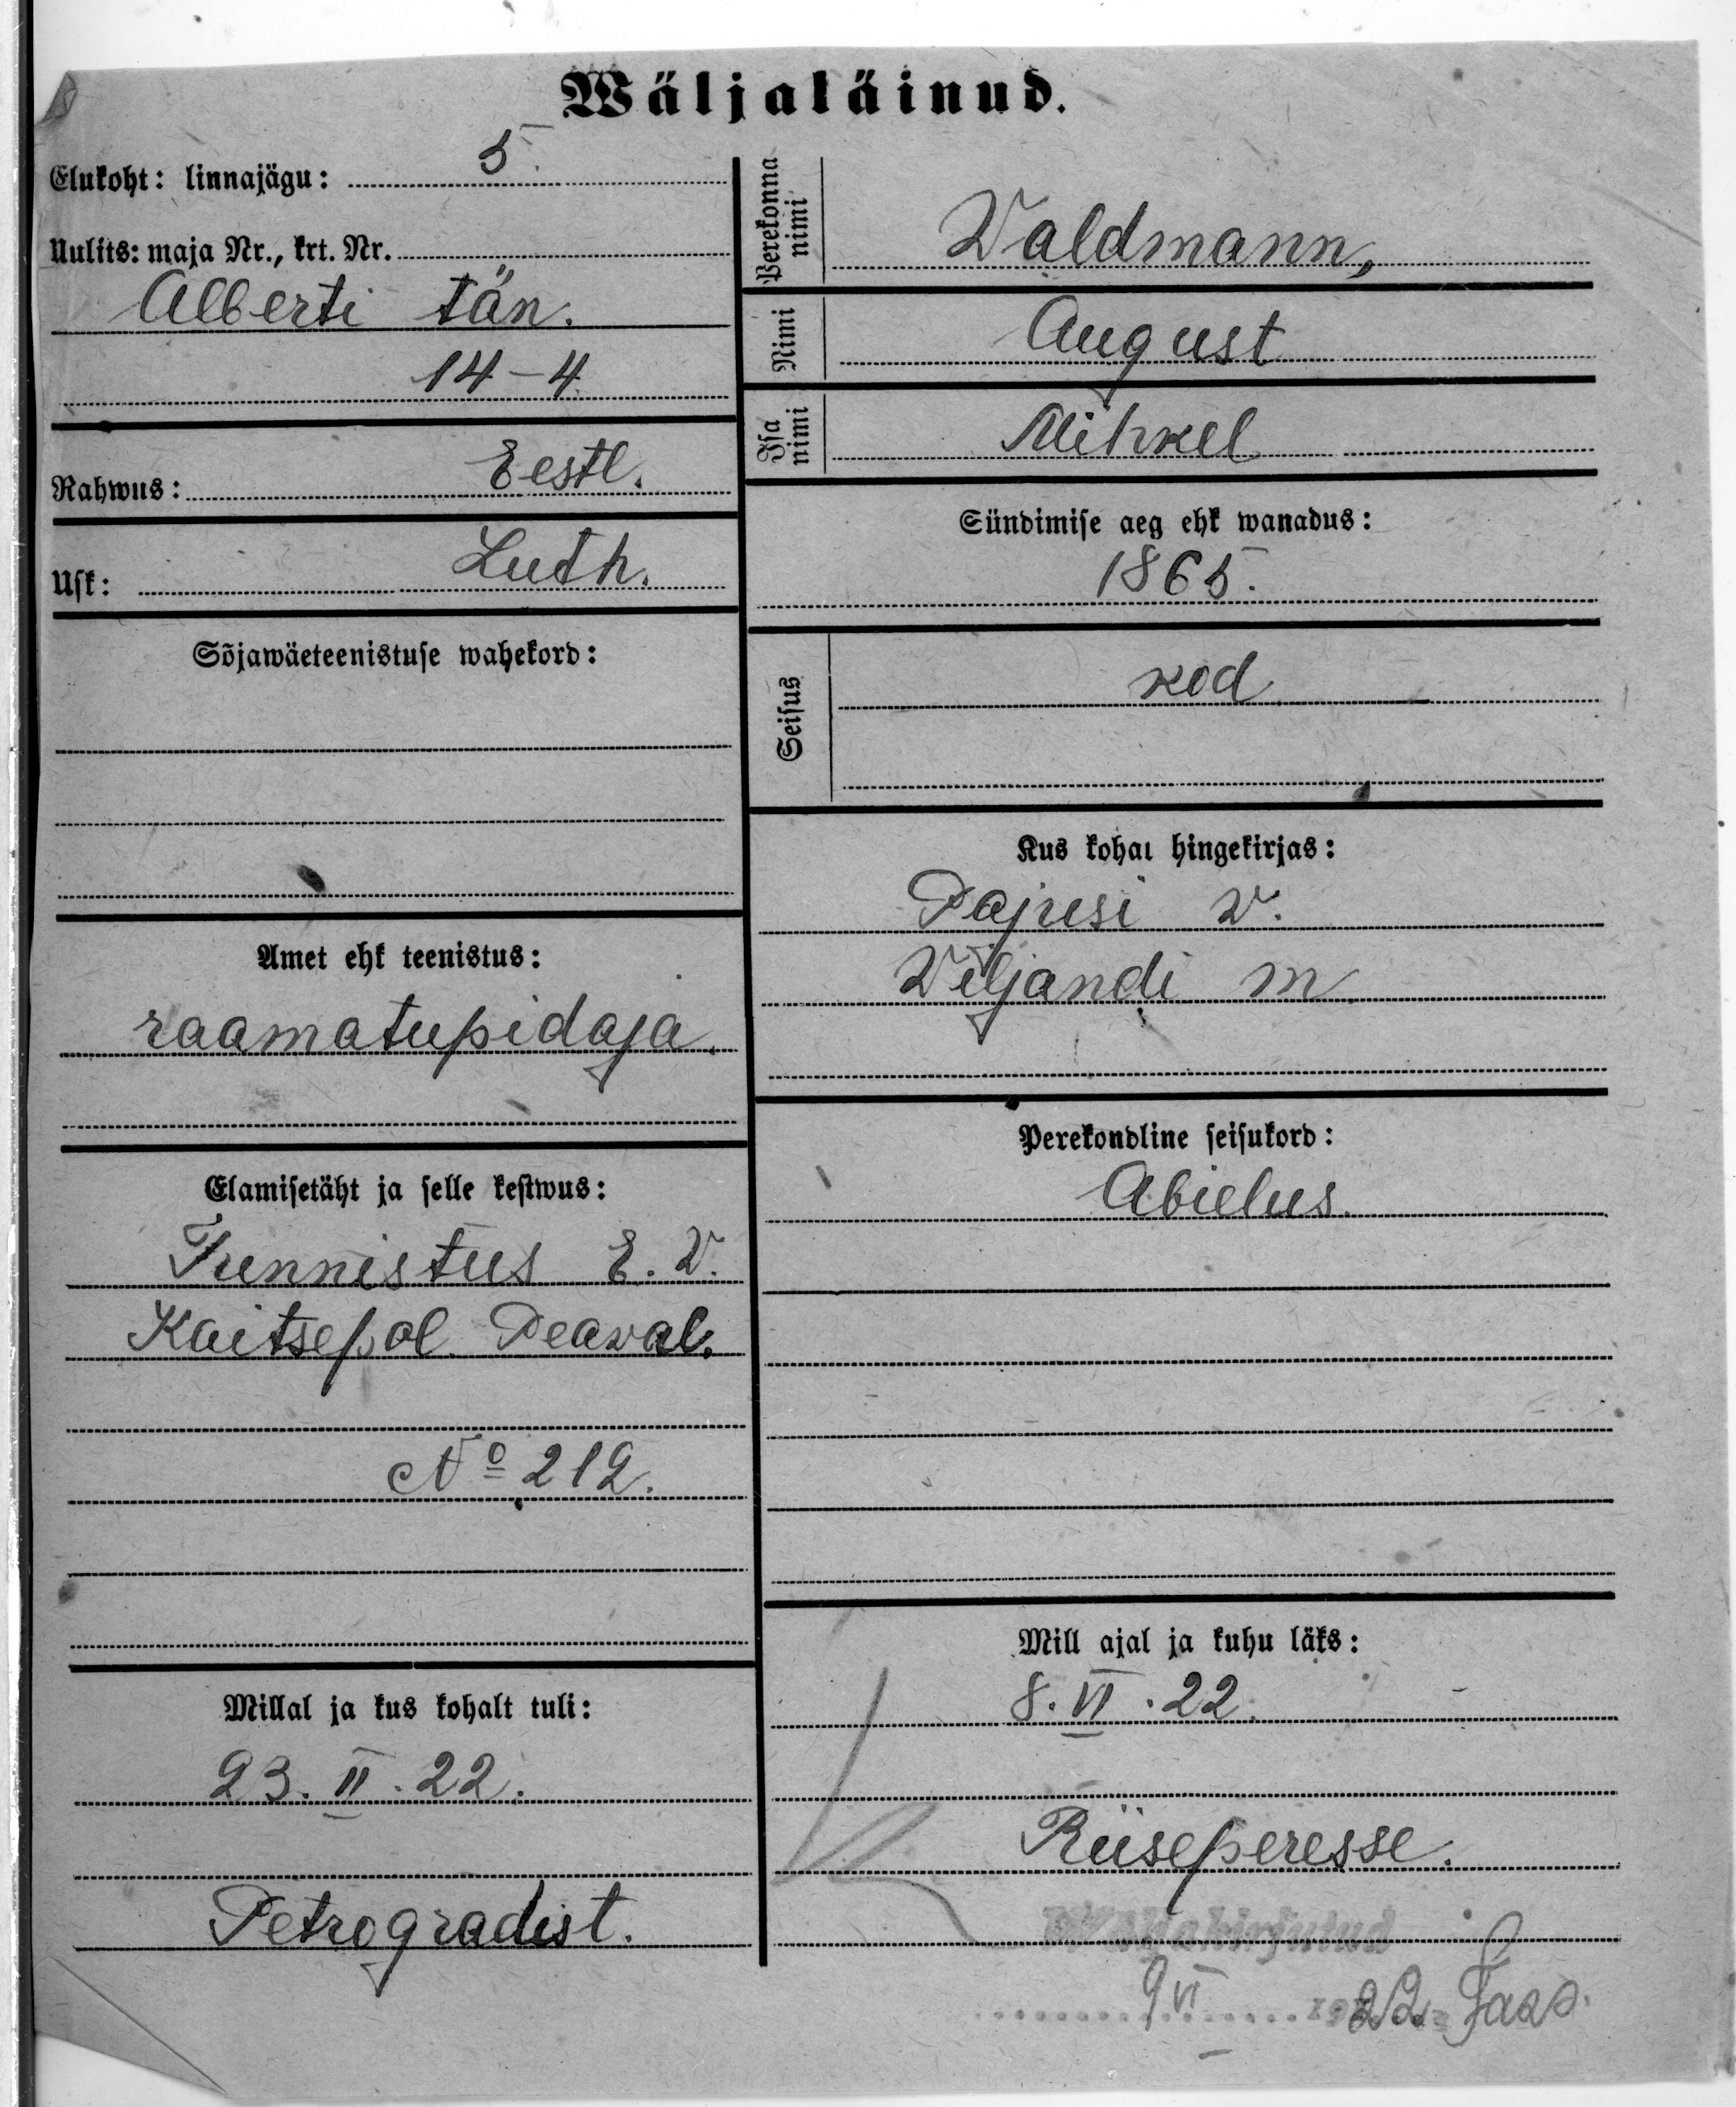 Wäljaläinud.
Elukoht: linnajägu: 5.
Uulits: maja Nr., krt. Nr.
Alberti tän.
14-4
Rahwus: Eestl.
Usk: Luth.
Sõjawäeteenistuse wahekord:
Amet ehk teenistus:
raamatupidaja.
Elamisetäht ja selle kestwus:
Tunnistus E. V.
Kaitsepol. Peaval.
№ 212.
Millal ja kus kohalt tuli:
23. II. 22.
Petrogradist.
Perekonna nimi
Waldmann,
Nimi
August
Isa nimi
Mihkel
Sündimise aeg ehk wanadus:
1865.
Seisus
kod.
Kus kohal hingekirjas:
Pajusi v.
Viljandi m.
Perekondline seisukord:
Abielus.
Mill ajal ja kuhu läks:
8. VI. 22.
Riiseperesse.
Wäljakirjutud
9 VI 1922